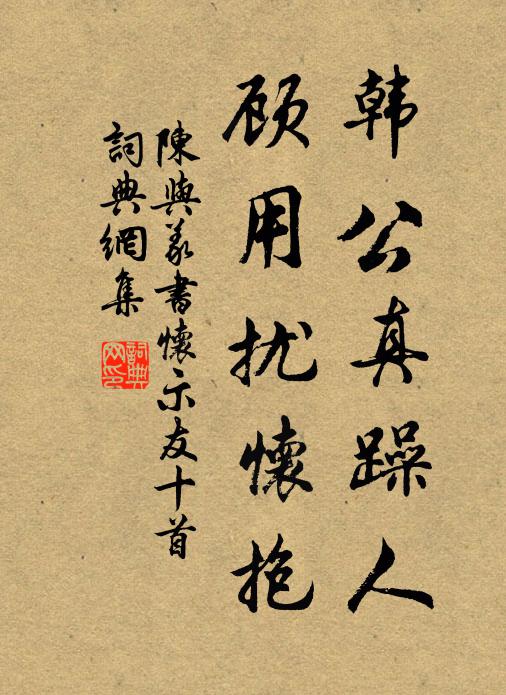 韩公真躁人
顾用扰懷抱
陳與義書懷示友十首
詞典網集
詞典網印